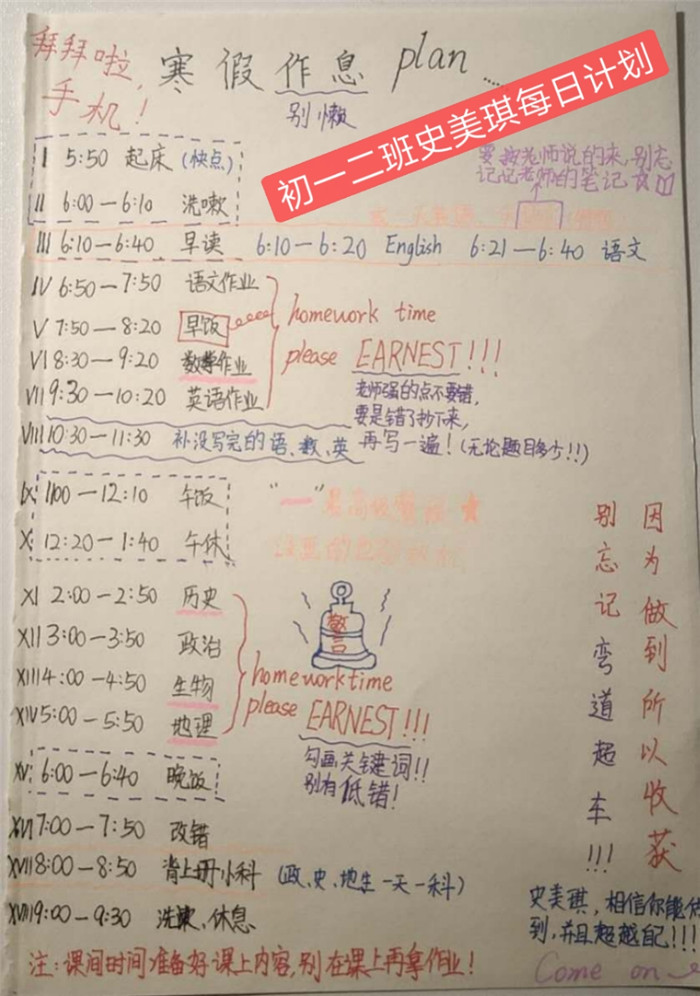 拜拜啦,
手机!
寒假作息 plan......
别懒
初一二班史美琪每日计划
要按老师说的来,别忘
记记老师的笔记☆
I 5:50 起床 (快点)
II 6:00—6:10 洗嗽
III 6:10—6:40 早读 6:10—6:20 English 6:21—6:40 语文
IV 6:50—7:50 语文作业
V 7:50—8:20 早饭
VI 8:30—9:20 数学作业
VII 9:30—10:20 英语作业
homework time
please EARNEST!!!
老师强的点不要错,
要是错了抄下来,
再写一遍!(无论题目多少!!)
VIII 10:30—11:30 补没写完的语、数、英
IX 1100—12:10 午饭
X 12:20—1:40 午休
"一"最高级警报★
XI 2:00—2:50 历史
XII 3:00—3:50 政治
XIII 4:00—4:50 生物
XIV 5:00—5:50 地理
警
homework time
please EARNEST!!!
勾画关键词!!
别有低错!
XV 6:00—6:40 晚饭
XVI 7:00—7:50 改错
XVII 8:00—8:50 背上册小科 (政、史、地生一天一科)
XVIII 9:00—9:30 洗漱、休息
注:课间时间准备好课上内容,别在课上再拿作业!
因为做到所以收获
别忘记弯道超车!!!
史美琪,相信你能做
到,并且超越自己!!!
Come on~